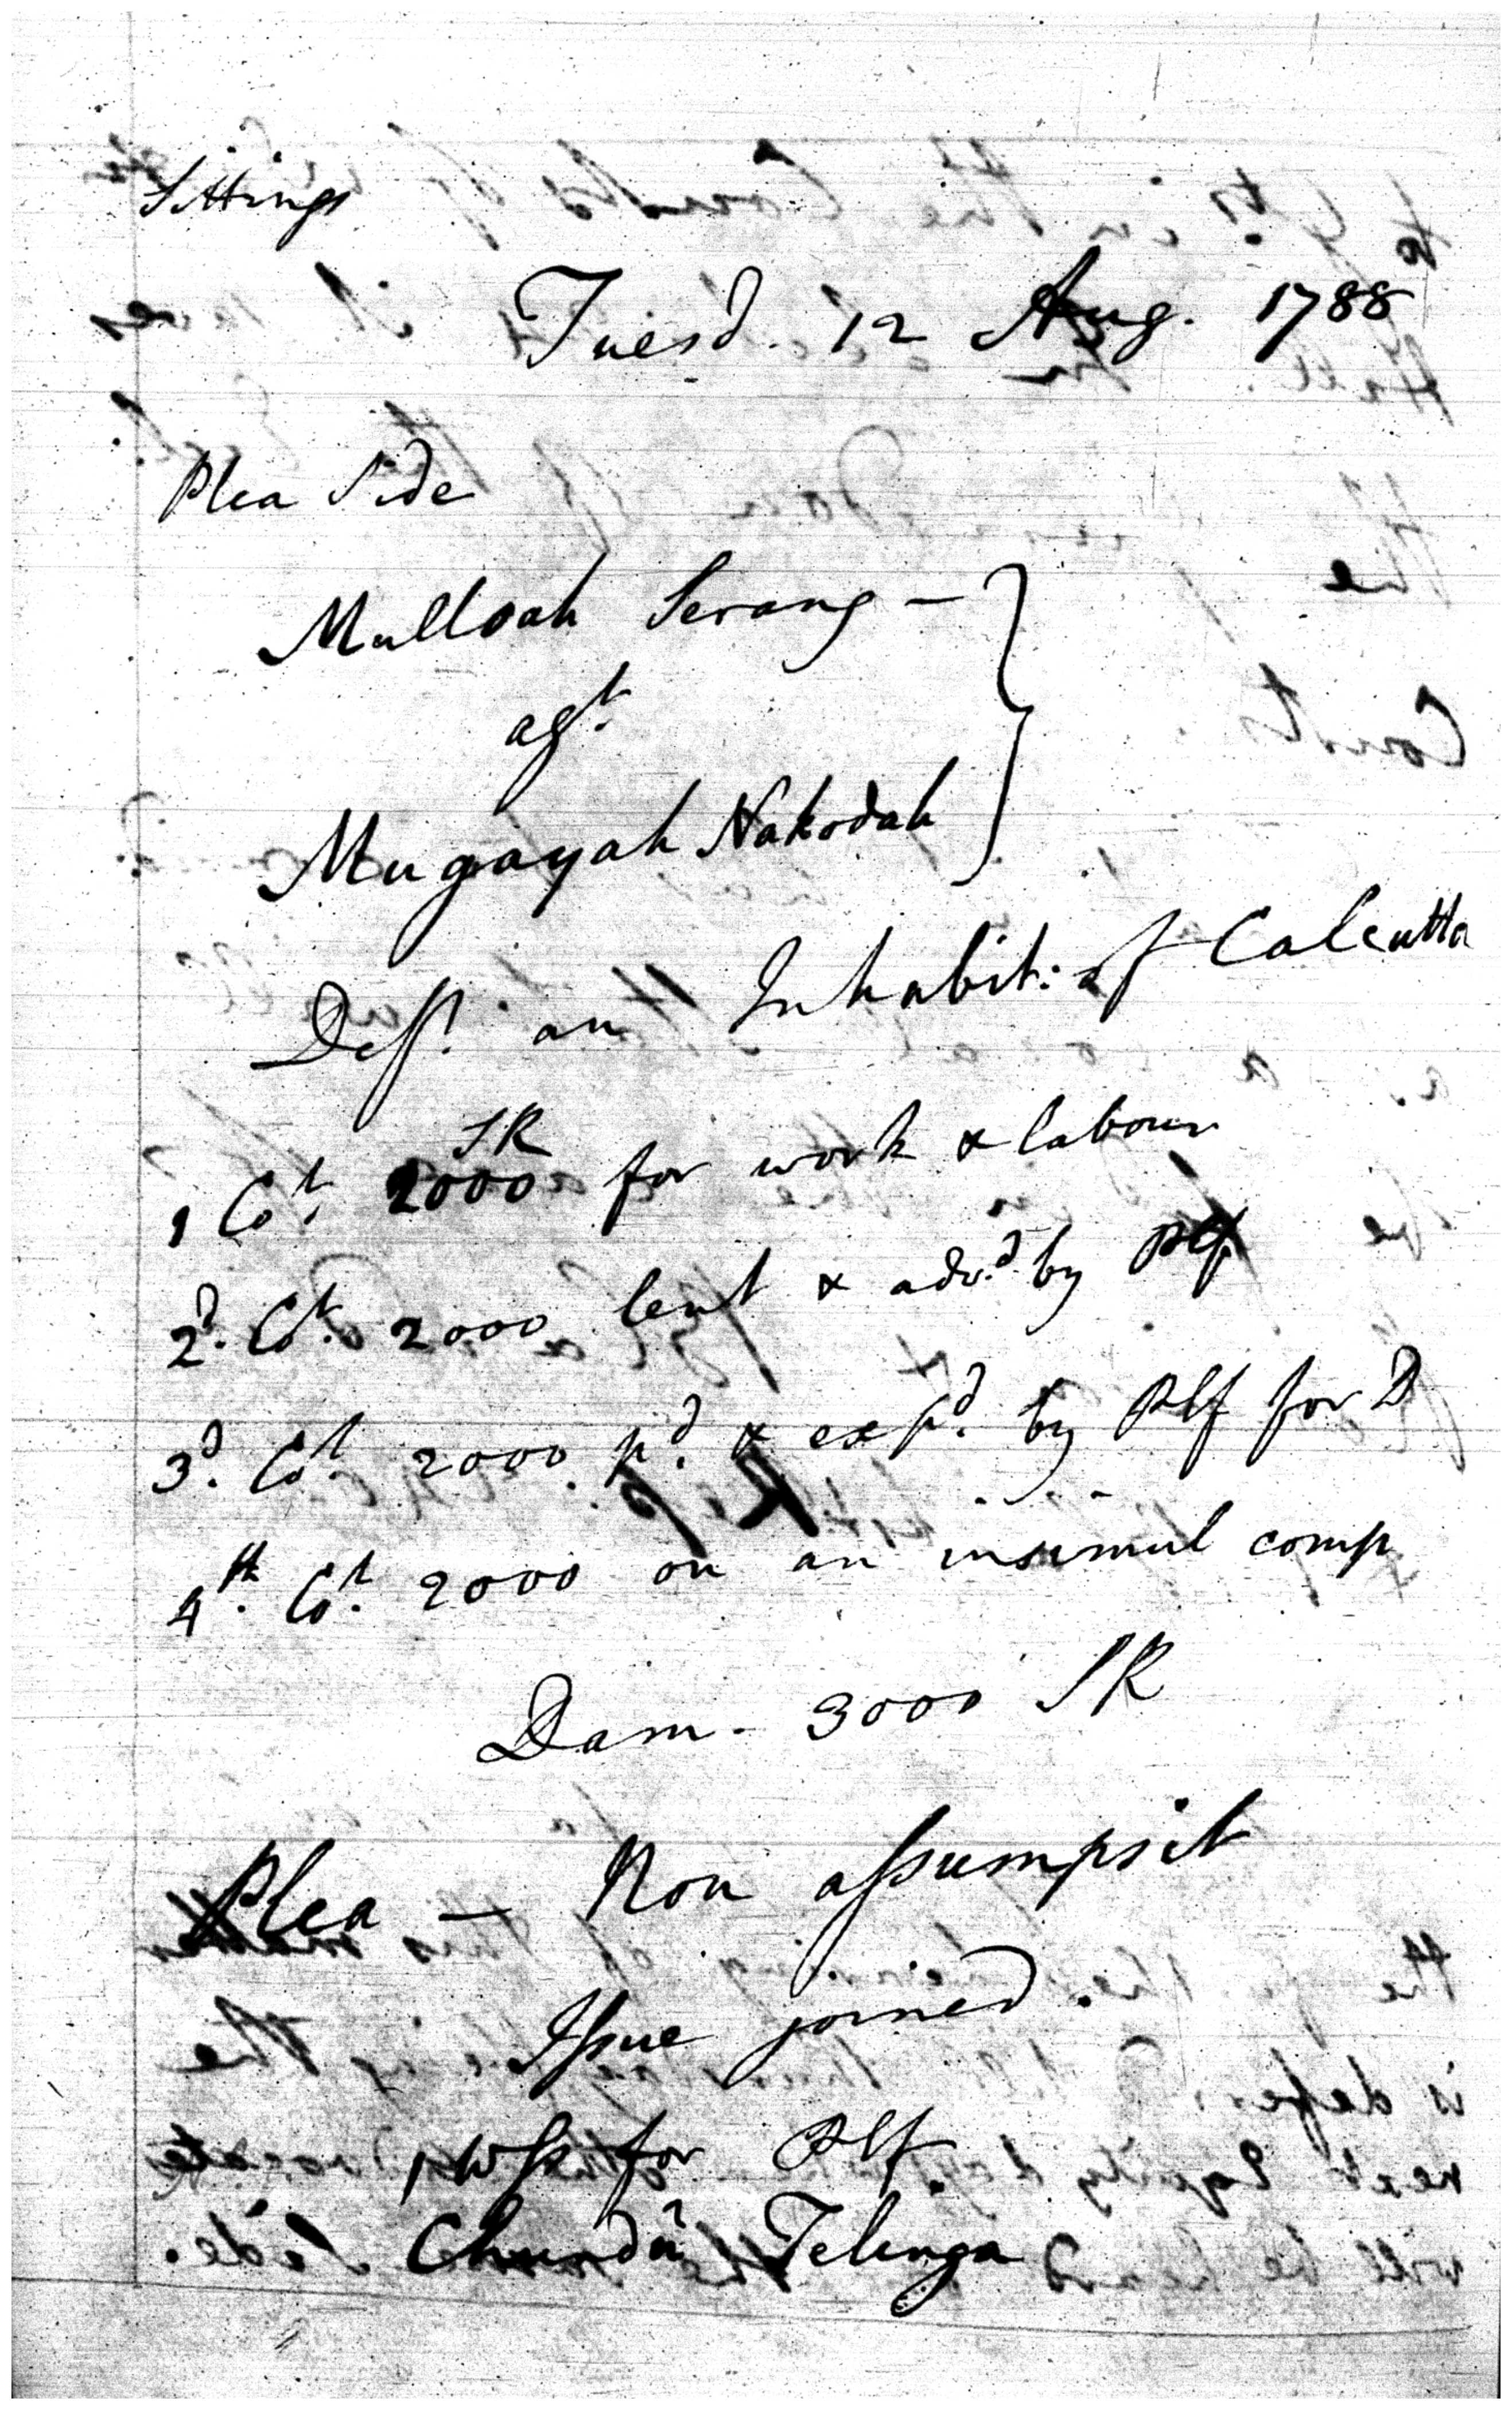 Sittings
Tuesd. 12 Aug. 1788
Plea Side
Mulloah Serang —
agt.
Mugayah Nakodah
Deft. an Inhabit: of Calcutta
SR
1 Ct. 2000 for work & labour
2d. Ct. 2000 lent & advd. by Plf
3d. Ct. 2000 pd. & expd. by Plf for D
4th. Ct. 2000 on an insimul comp
Dam. 3000 SR
Plea — Non assumpsit
Issue joined.
1 Wss for Plf
Telinga